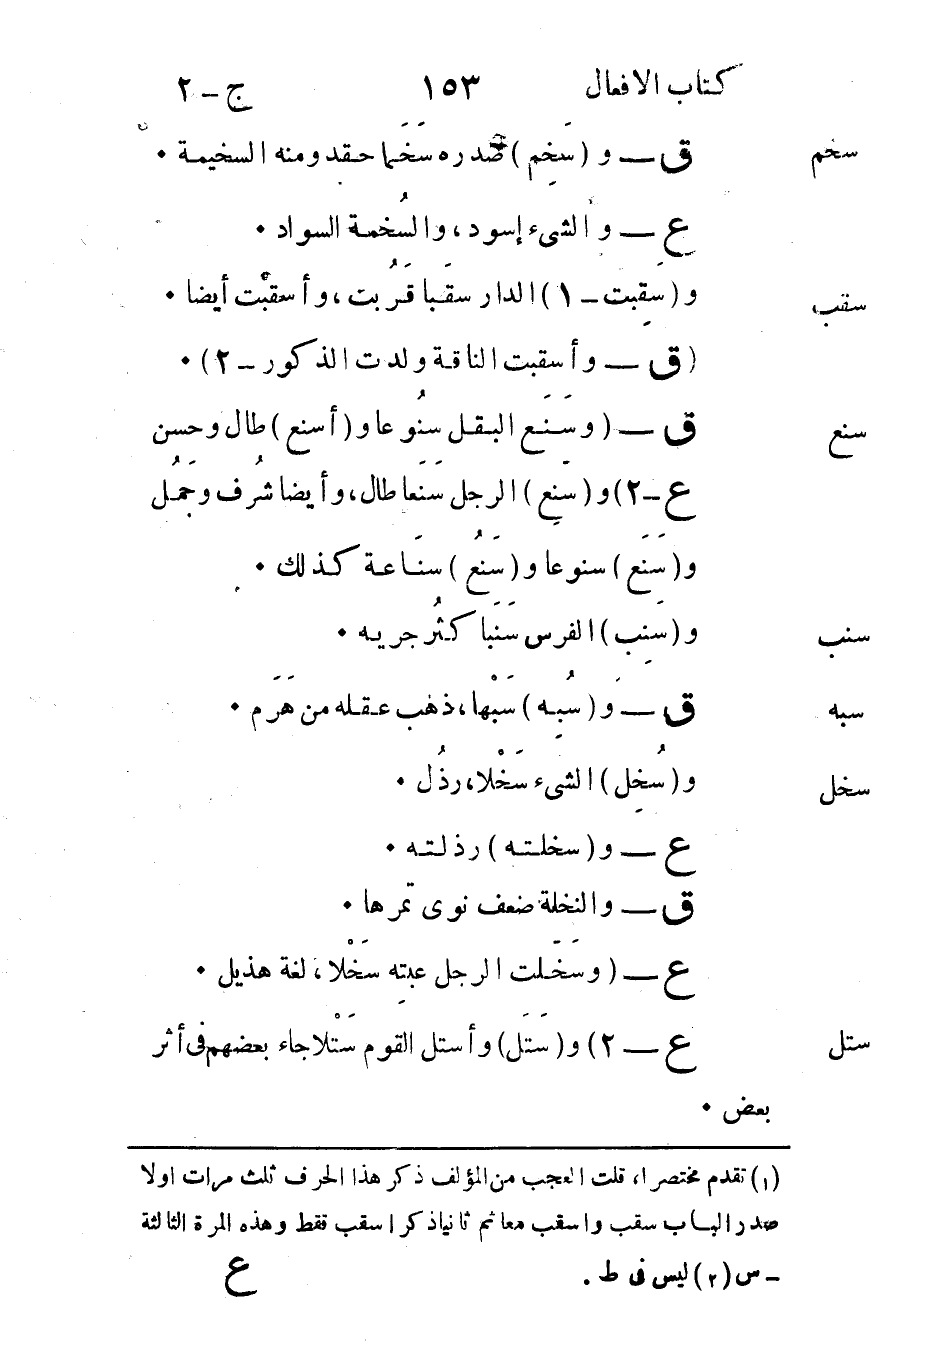 كتاب الافعال ١٥٣ ج - ٢
سخم ق — و (سَخِم) صدره سَخَما حقد ومنه السخيمة •
ع — و الشىء إسود، والسُخمة السواد •
سقب و (سقِبت - ١) الدار سقَبا قَرُبت، وأسقبْت أيضا •
(ق — وأسقبت الناقة ولدت الذكور - ٢) •
سنع ق — (وسَنَع البقل سنُوعا و (أسنع) طال وحسن
ع - ٢) و (سَنِع) الرجل سَنَعا طال، وأيضا شرُف وجَمُل
و (سَنَع) سنوعا و (سَنُع) سنَاعة كذلك •
سنب و (سَنِب) الفرس سَنَبا كثُر جريه •
سبه ق — و (سُبِه) سَبْها، ذهب عقله من هَرَم •
سخل و (سُخِل) الشىء سَخْلا، رذُل •
ع — و (سخلته) رذلته •
ق — والنخلة ضعف نوى تمرها •
ع — (وسَخَلت الرجل عبته سَخْلا، لغة هذيل •
ستل ع — ٢) و (سَتَل) وأستل القوم سَتْلا جاء بعضهم فى أثر
بعض •
(١) تقدم مختصرا، قلت العجب من المؤلف ذكر هذا الحرف ثلث مرات اولا
صدر الباب سقب واسقب معا ثم ثانيا ذكر اسقب فقط وهذه المرة الثالثة
- س (٢) ليس فى ط.
ع